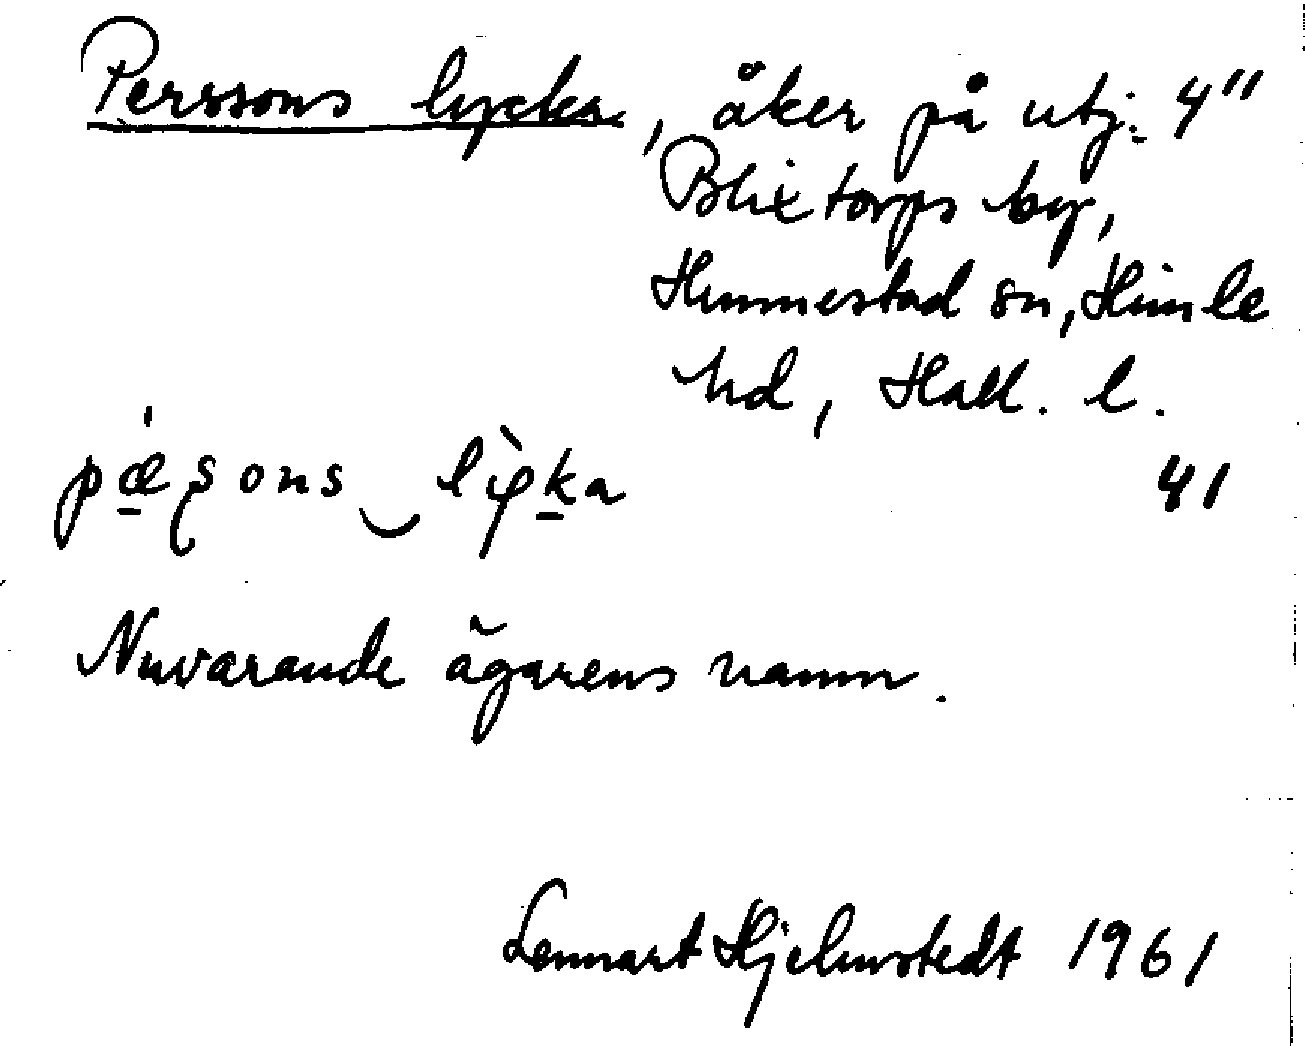 Perssons lycka, åker på utj. 4"
Blixtorps by,
Hunnestad sn, Himle
hd, Hall. l.
pǽʂons‿lỳka 41
Nuvarande ägarens namn.
Lennart Hjelmstedt 1961